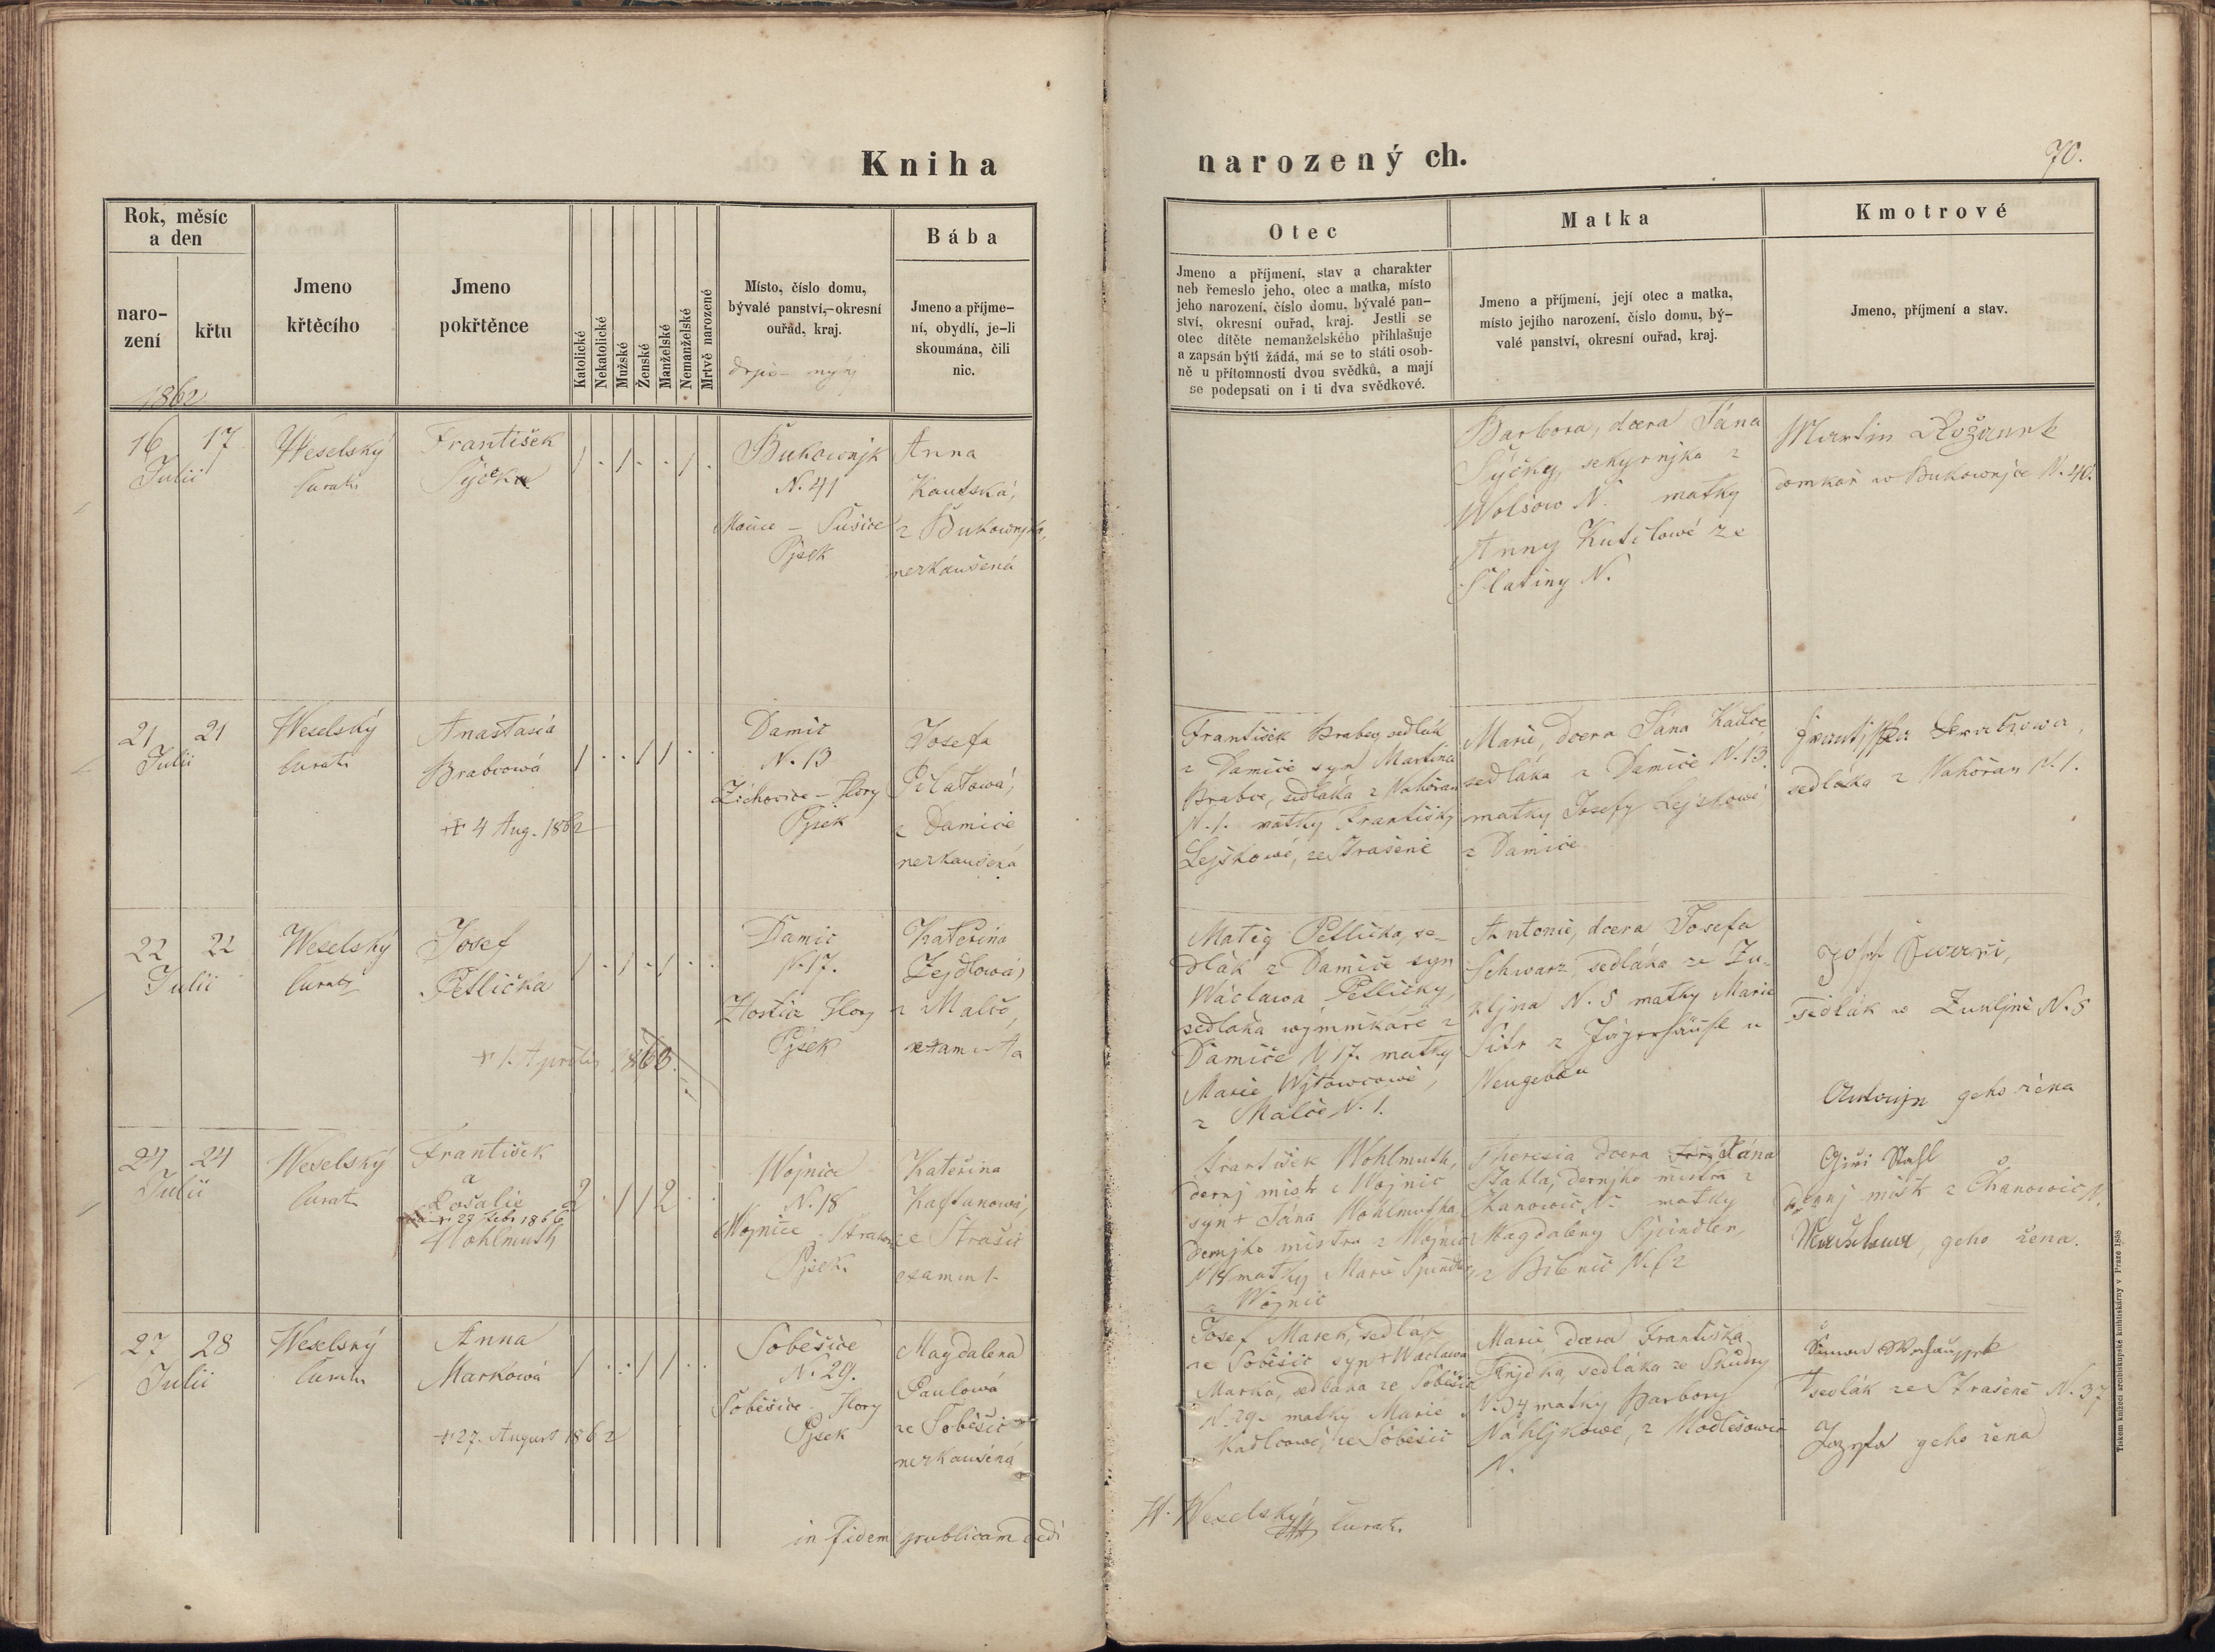 Kniha
narozený ch.
70.
Rok, měsíc
a den
naro-
zení
křtu
Jmeno
křtěcího
Jmeno
pokřtěnce
Katolické
Nekatolické
Mužské
Ženské
Manželské
Nemanželské
Mrtvě narozené
Místo, číslo domu,
bývalé panství,-okresní
ouřad, kraj.
Bába
Jmeno a příjme-
ní, obydlí, je-li
skoumána, čili
nic.
Otec
Jmeno a příjmení, stav a charakter
neb řemeslo jeho, otec a matka, místo
jeho narození, číslo domu, bývalé pan-
ství, okresní ouřad, kraj. Jestli se
otec dítěte nemanželského přihlašuje
a zapsán býti žádá, má se to státi osob-
ně u přítomnosti dvou svědků, a mají
se podepsati on i ti dva svědkové.
Matka
Jmeno a příjmení, její otec a matka,
místo jejího narození, číslo domu, bý-
valé panství, okresní ouřad, kraj.
Kmotrové
Jmeno, příjmení a stav.
1862
16 17
Julii
Weselský
Curat.
František
Sýčka
1 . 1 . . 1 .
Bukownjk
N. 41
Sušice
Pjsek
Anna
Kautská,
z Bukownjka,
nezkaušená
Barbora, dcera Jána
Sýčky, sekyrnjka z
Wolšow N. matky
Anny Kutilowé ze
Slatiny N.
Martin
domkař w Bukownjce N. 40.
21 21
Julii
Weselský
Curat.
Anastasia
Brabcowá
+ 4 Aug. 1862
1 . . 1 1 . .
Damic
N. 13
Žichovice - Hory
Pjsek
Josefa
Pilatowá,
z Damice
nezkaušená
František Brabec, sedlák
z Damice syn Martina
Brabce, sedláka z Nahořan
N. 1. matky Františky
Lejskowé, ze Strašené
Marie, dcera Jána Kadlce
sedláka z Damice N. 13.
matky Josefy Lejskowé
z Damice
sedláka z Nahořan N. 1.
22 22
Julii
Weselský
Curat.
Josef
Petlička
+ 1. Aprilis 1863.
1 . 1 . 1 . .
Damic
N. 17.
Hory
Pjsek
Kateřina
Zejdlowá,
z Malče,
examinta
Matěg Petlička, se-
dlák z Damiče syn
Wáclawa Petličky,
sedláka wýmínkáře z
Damiče N 17. matky
Marie Wjtowcowé,
z Malče N. 1.
Antonie, dcera Josefa
Schwarz, sedláka ze Zu-
kljna N. 5 matky Marie
z Jägerhäusl u
Neugebäu
Josef
sedlák w N. 5
geho žena
24 24
Julii
Weselský
Curat.
František
a
Rosalie
+ 27 Febr 1866
Wohlmuth
2 . 1 1 2 . .
Wojnice
N. 18
Wojnice - Strakon
Pjsek
Kateřina
Kaftanowá,
ze Strašic
examint.
František Wohlmuth,
dernj mistr z Wojnic
syn + Jána Wohlmutha
dernjho mistra z Wojnic
N 18 matky Marie Spindler,
z Wojnic
Theresia dcera Jána
Stahla, dernjho mistra z
Kanowic N. matky
Magdaleny Spindler,
z N. 62
Giři Stahl
mistr z Chanowic N.
geho žena.
27 28
Julii
Weselský
Curat.
Anna
Markowá
+ 27. August 1862
1 . . 1 1 . .
Soběšice
N. 29.
Soběšice - Hory
Pjsek
Magdalena
Paulowá
ze Soběšic
nezkaušéná
Josef Marek, sedlák
ze Soběšic syn + Wáclawa
Marka, sedláka ze Soběšic
N. 29. matky Marie
Kadlcowé, ze Soběšic
Marie dcera Františka
sedláka ze
N. 34 matky Barbory
Náhljkowé, z Hodlešowic
N.
Šimon
sedlák ze Strašené N. 37
Jozefa geho žena
in fidem publicam dedi
W. Weselský Curat.
Tiskem knížecí arcibiskupské knihtiskárny v Praze 1858